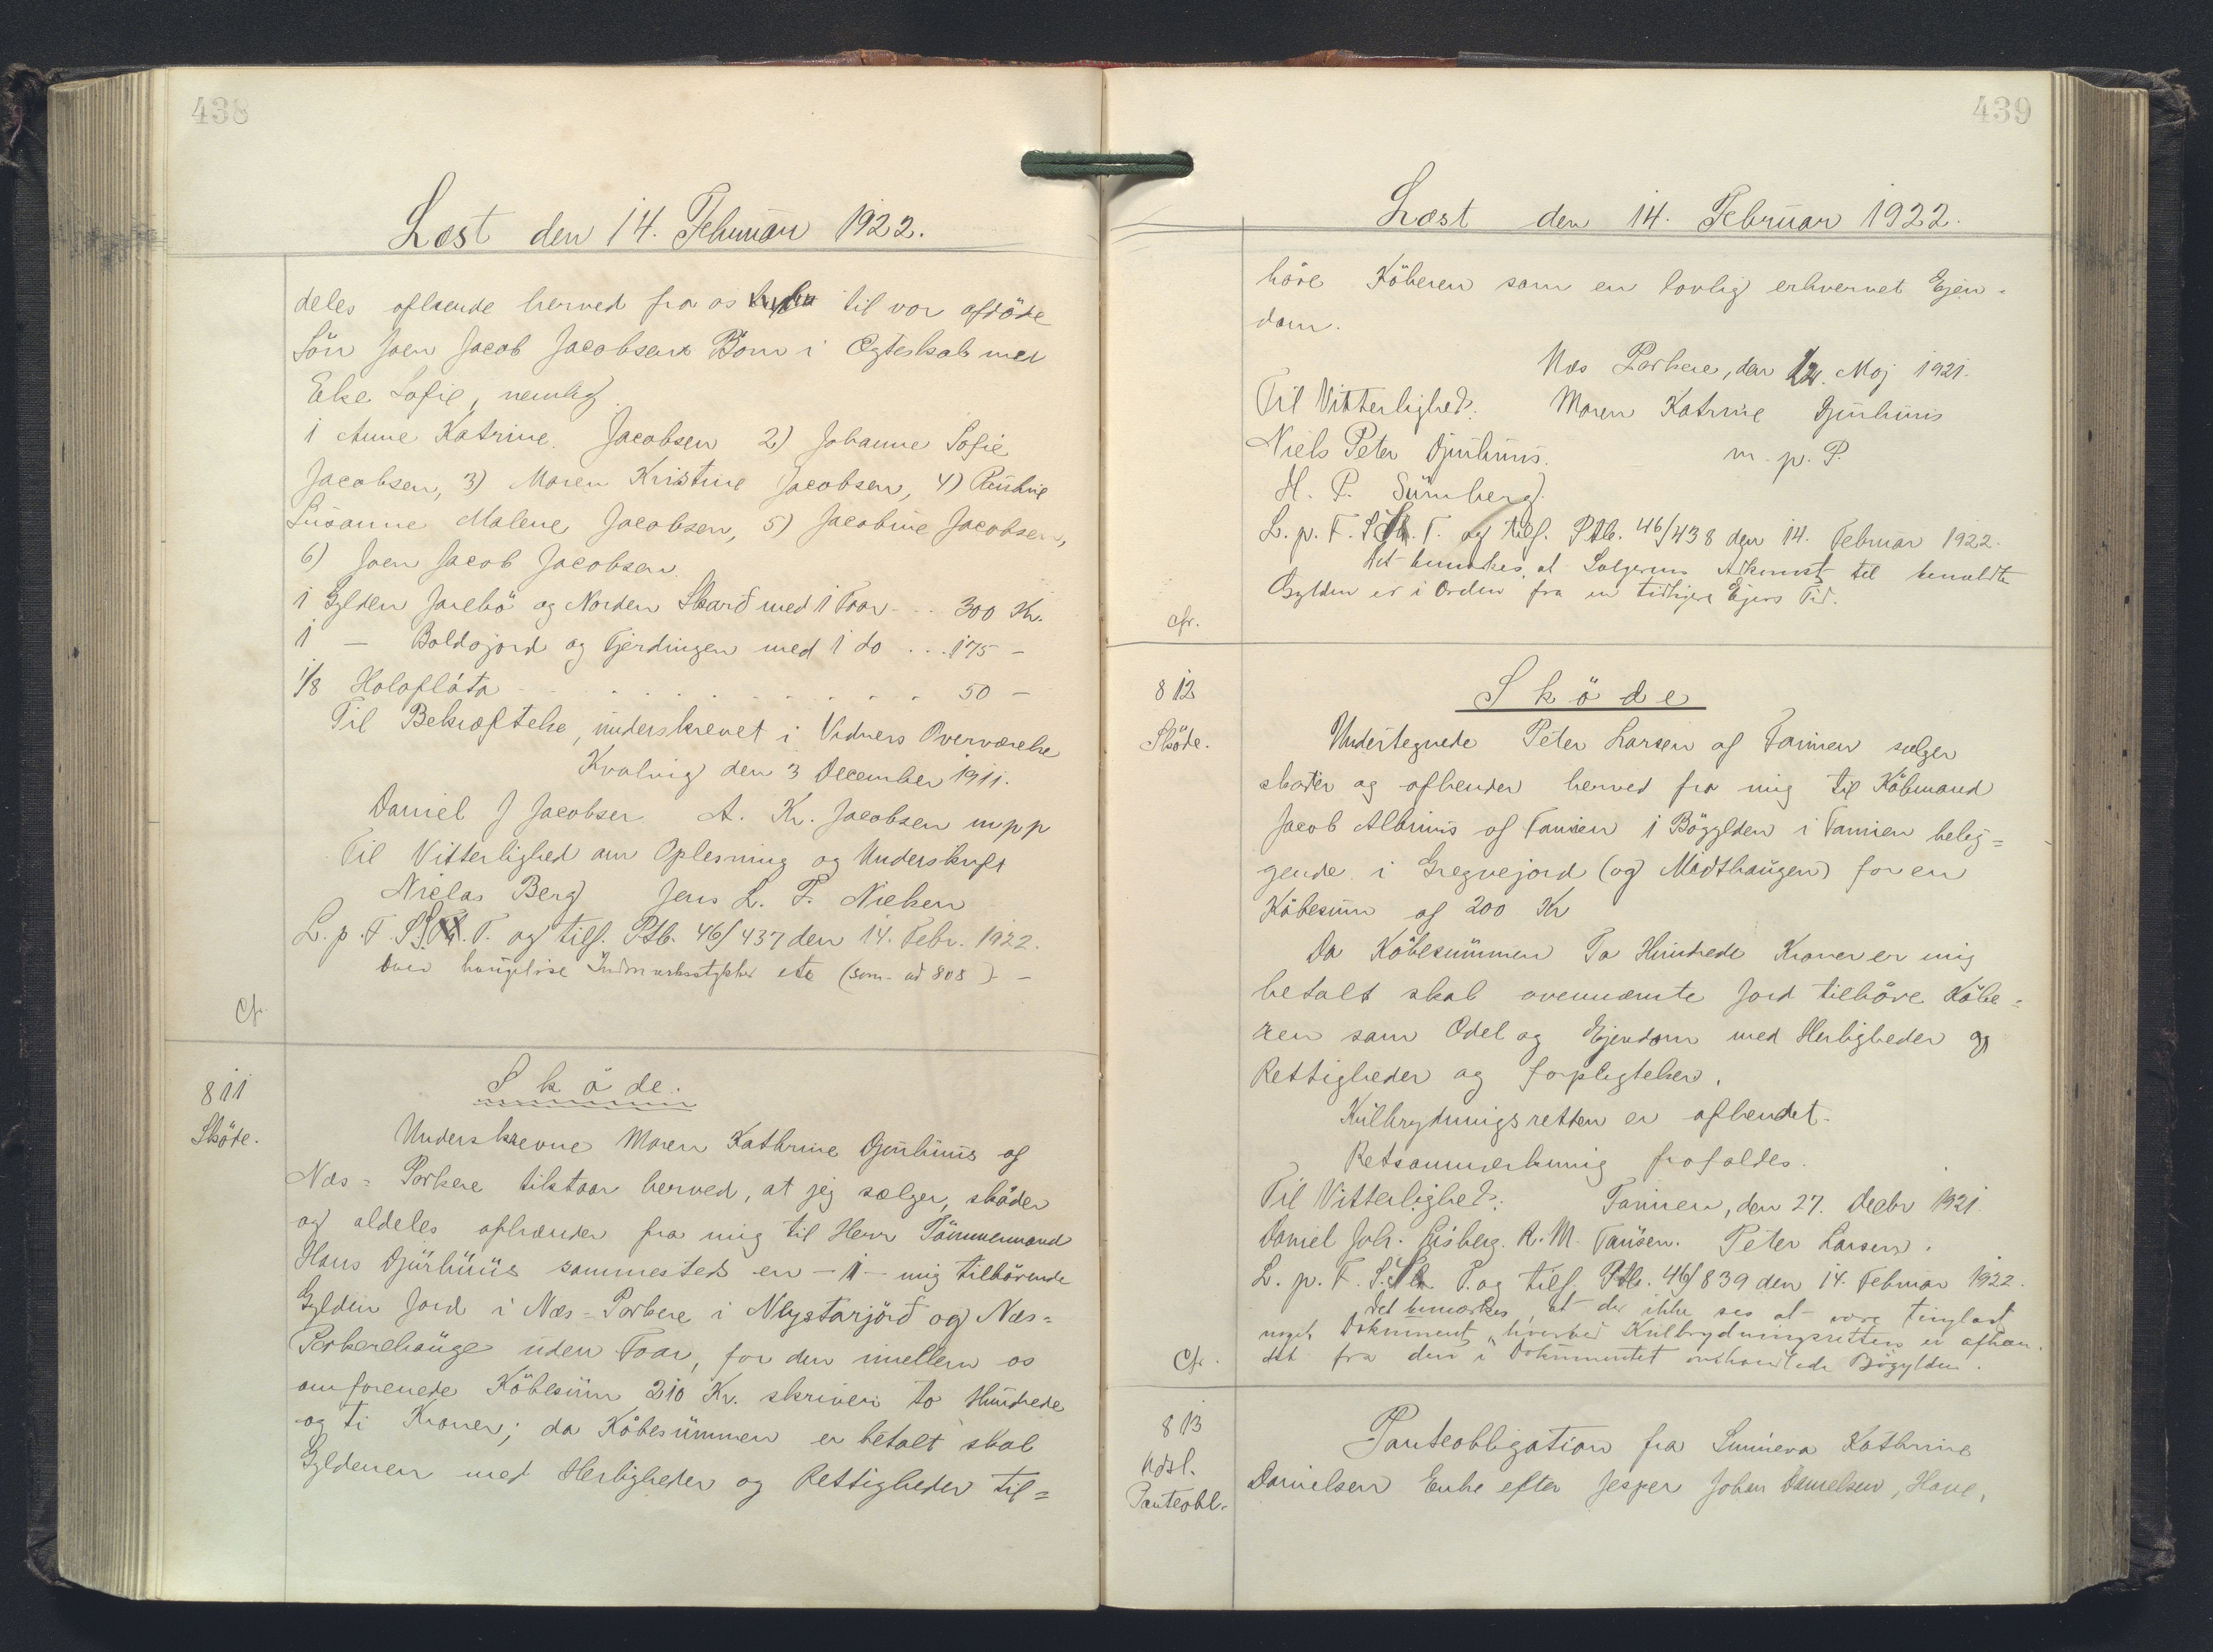 438
Læst den 14. Februar 1922.
deles afhænde herved fra os til vor afdöde
Sön Joen Jacob Jacobsens Börn i Ægteskab med
Else Sofie, nemlig
1 Anne Katrine Jacobsen 2) Johanne Sofie
Jacobsen, 3) Maren Kristine Jacobsen, 4)
Susanne Malene Jacobsen, 5) Jacobine Jacobsen,
6) Joen Jacob Jacobsen
1 Gylden Jarebö og Norden Skarð med 1 Faar - .. 300 Kr.
1 — Boldsjord og Fjerdingen med 1 do ... 175 -
1/8 Holaflåta . . . . . . . . 50 -
Til Bekræftelse, underskrevet i Vidners Overværelse
Kvalvig den 3 December 1911.
Daniel J Jacobsen A. Kr. Jacobsen mpp
Til Vitterlighed om Oplæsning og Underskrift
Niclas Berg Jens L. P. Nielsen
L. p. F. S. T. og tilf. Ptb. 46/437 den 14. Febr. 1922.
etc (som ad 808) -
Cfr.
811
Sköte.
Sköde.
Underskrevne Maren Kathrine Djurhuus af
Næs = Porkere tilstaar herved, at jeg sælger, skøder
og aldeles afhænder fra mig til Herr Tömmermand
Hans Djurhuus sammesteds en - 1 - mig tilhörende
Gylden Jord i Næs = Porkere i Nystarjörð og Næs=
Porkerehauge uden Faar, for den imellem os
omforenede Köbesum 210 Kr. skriver to Hundrede
og ti Kroner; da Köbesummen er betalt skal
Gyldenen med Herligheder og Rettigheder til=
439
Læst den 14. Februar 1922.
höre Köberen som en lovlig erhvervet Ejen=
dom.
Næs Porkere, den 12. Maj 1921.
Til Vitterlighed: Maren Katrine Djurhuus
Niels Peter Djurhuus. m. p. P.
H. P. Sumberg.
L. p. F. S. T. og tilf. Ptb. 46/438 den 14. Februar 1922.
Det bemærkes, at Sælgerens Adkomst til bemeldte
Gylden er i Orden fra en tidligere Ejers Tid.
cfr.
812
Sköde.
Sköde
Undertegnede Peter Larsen af Famien sælger
skøder og afhender herved fra mig til Köbmand
Jacob Albinus af Famien 1 Bögylden i Famien belig=
gende i Gregvejord (og Midthaugen) for en
Köbesum af 200 Kr
Da Köbesummen To Hundrede Kroner er mig
betalt skal ovennævnte Jord tilhöre Köbe=
ren som Odel og Ejendom med Herligheder og
Rettigheder og forpligtelser.
Kulbrydningsretten er afhendet.
Retsanmerkning frafaldes.
Til Vitterlighed: Famien, den 27. Decbr 1921.
Daniel Joh. Eisberg. R. M. Tausen. Peter Larsen.
L. p. F. S. T. og tilf. Ptb. 46/839 den 14. Februar 1922.
Det bemærkes, at der ikke ses at være tinglæst
noget Dokument, hvorved Kulbrydningsretten er afhæn-
det fra den i Dokumentet omhandlede Bögylden.
Cfr.
813
Udsl.
Panteobl.
Panteobligation fra Sunneva Kathrine
Danielsen Enke efter Jesper Johan Danielsen, Hove,